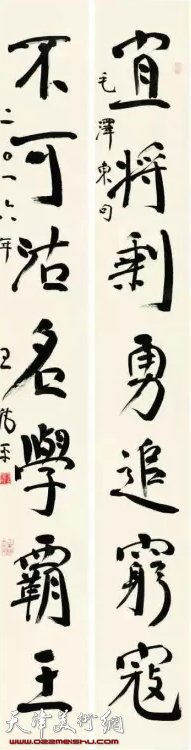 宜将剩勇追穷寇
毛澤東句
不可沽名學霸王
二〇一六年
天津美術網
www.022meishu.com